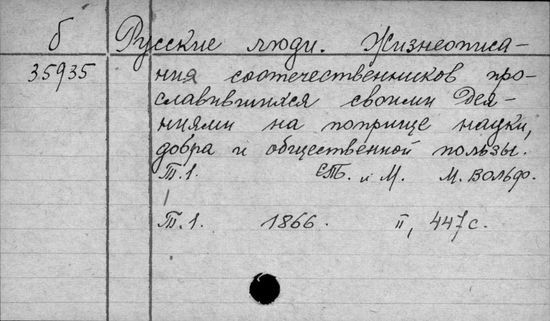 б Русские люди. Жизнеописа-
35935 ния соотечественников про-
славившихся своими дея-
ниями на поприще науки,
добра и общественной пользы.
Т.1. СПБ. и М. М. Вольф.
Т.1. 1866. II, 447 с.